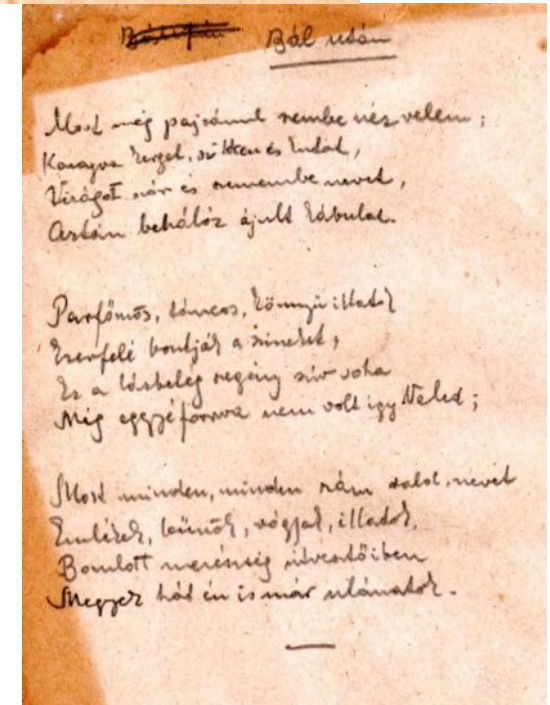 Bál után
Most még pajzánul szembe néz velem;
Kacagva kerget, csitken és kutat,
Virágot szór és szemembe nevet,
Aztán behálóz ájult kábulat.
Parfőmös, táncos, könnyü illatok
Ezerfelé bontják a szineket,
És a lázbeteg szegény sziv soha
Még eggyéforrva nem volt igy Veled;
Most minden, minden rám nevet
Emlékek, bünök, vágyak, illatok,
Bomlott merészség útvesztőiben
Megyek hát én is már utánatok.